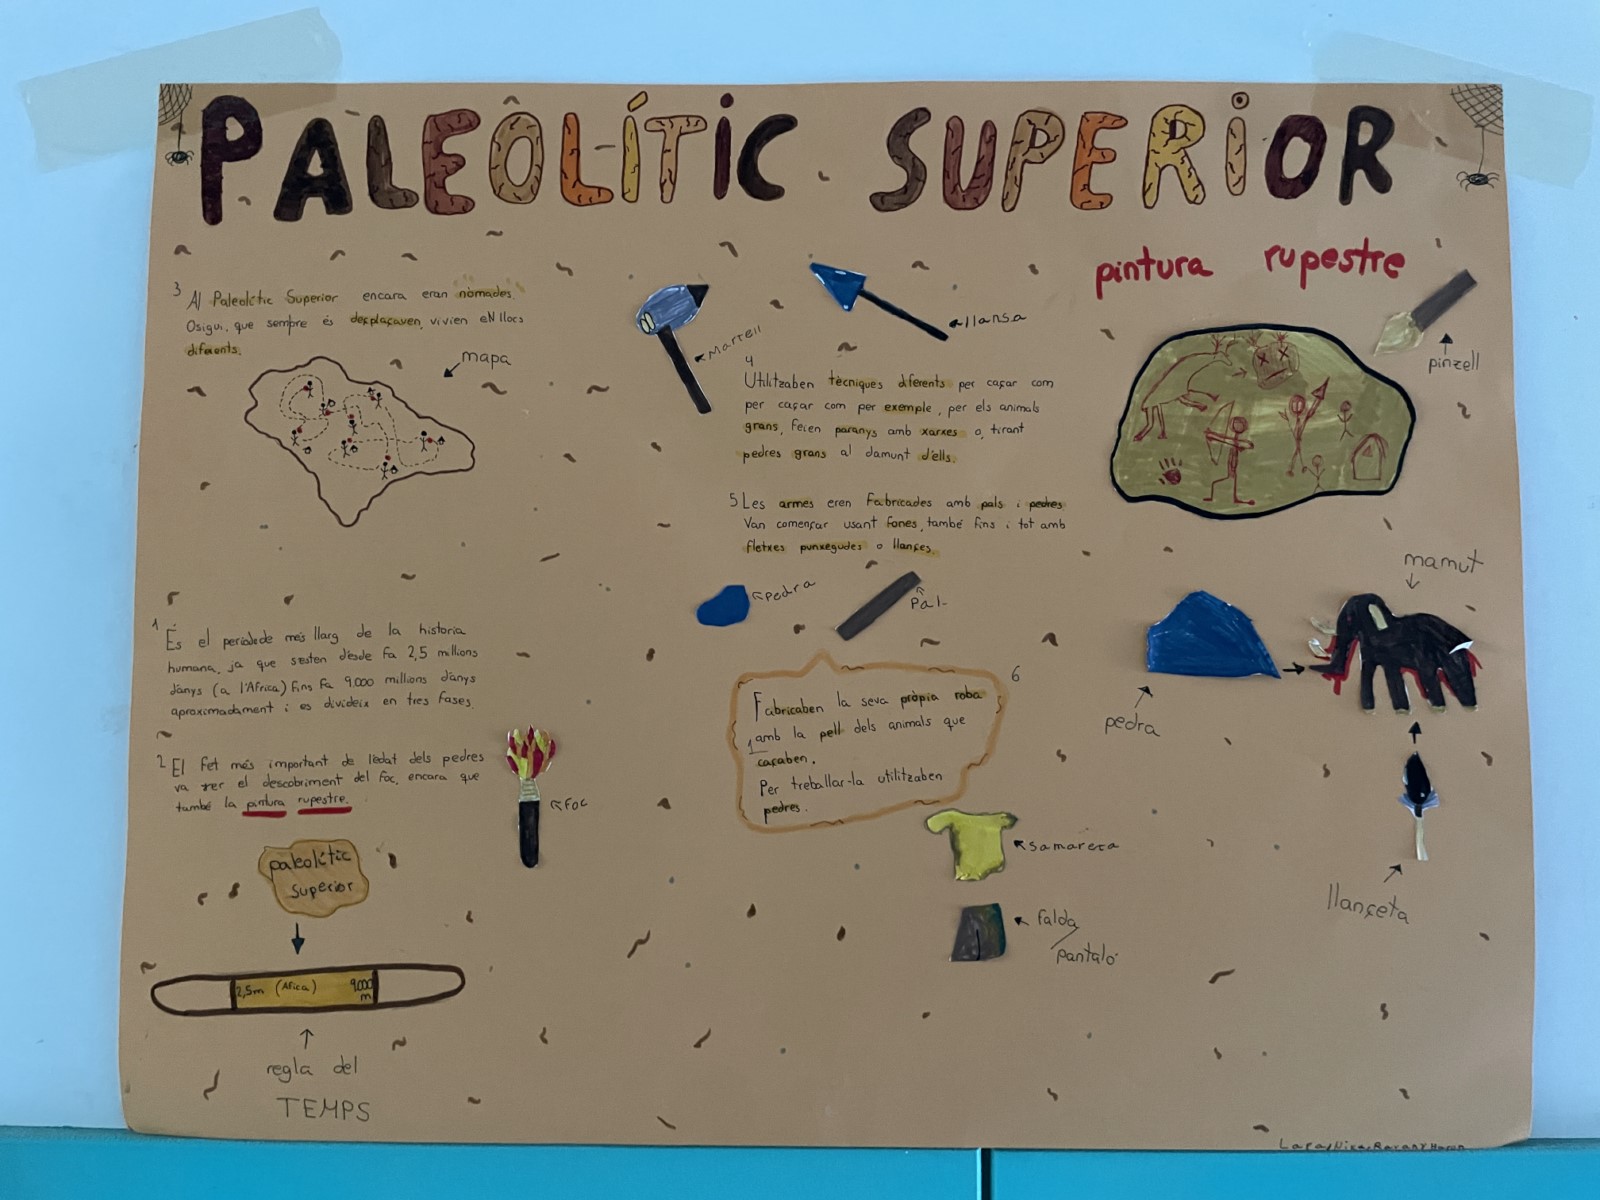 PALEOLÍTIC SUPERIOR
pintura rupestre
3
Al Paleolític Superior encara eran nòmades.
Osigui, que sempre és desplaçaven, vivien eN llocs
diferents.
mapa
Martell
allansa
pinzell
4
Utilitzaben tècniques diferents per caçar com
per caçar com per exemple, per els animals
grans, feien paranys amb xarxes o, tirant
pedres grans al damunt d'ells.
5 Les armes eren Fabricades amb pals i pedres
Van començar usant fones, també fins i tot amb
fletxes punxegudes o llançes.
pedra
Pal
mamut
pedra
llançeta
1
És el períodede més llarg de la historia
humana, ja que s'esten desde fa 2,5 millions
d'anys (a l'Africa) fins fa 9.000 millions d'anys
aproximadament i es divideix en tres fases.
2 El fet més important de l'edat dels pedres
va ser el descobriment del foc, encara que
també la pintura rupestre.
FOC
6
Fabricaben la seva pròpia roba
amb la pell dels animals que
1
caçaben.
Per treballar-la utilitzaben
pedres.
Samareta
falda/
pantaló
paleolític
superior
2,5m (Africa) 9.000
m
regla del
TEMPS